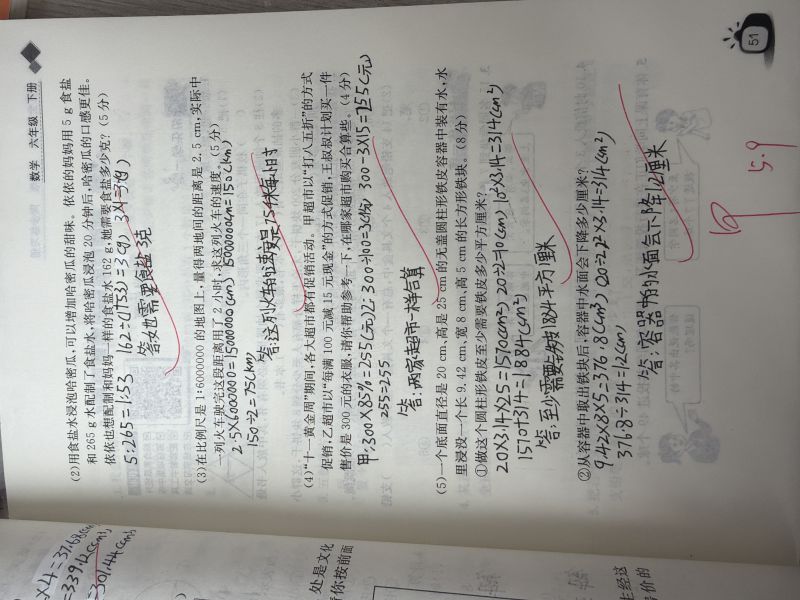 数学 六年级 下册
(2)用食盐水浸泡哈密瓜,可以增加哈密瓜的甜味。依依的妈妈用 5 g 食盐
和 265 g 水配制了食盐水,将哈密瓜浸泡 20 分钟后,哈密瓜的口感更佳。
依依也想配制和妈妈一样的食盐水 162 g,她需要食盐多少克?(5 分)
5:265=1:53 162÷(1+53)=3(g) 3×1=3(g)
答:她需要食盐3克
(3)在比例尺是 1:6000000 的地图上,量得两地间的距离是 2.5 cm,实际中
一列火车驶完这段距离用了 2 小时,求这列火车的速度。(5 分)
2.5×6000000=15000000(cm) 15000000cm=150(km)
150÷2=75(km)
答:这列火车的速度是75千米每小时
(4)“十一黄金周”期间,各大超市都有促销活动。甲超市以“打八五折”的方式
促销,乙超市以“每满 100 元减 15 元现金”的方式促销,王叔叔计划买一件
售价是 300 元的衣服,请你帮助参考一下,在哪家超市购买合算些。(4 分)
甲:300×85%=255(元)乙:300÷100=3(个) 300-3×15=255(元)
255=255
答:两家超市一样合算
(5)一个底面直径是 20 cm,高是 25 cm 的无盖圆柱形铁皮容器中装有水,水
里浸没一个长 9.42 cm、宽 8 cm、高 5 cm 的长方形铁块。(8 分)
①做这个圆柱形铁皮至少需要铁皮多少平方厘米?
20×3.14×25=1570(cm²) 20÷2=10(cm) 10²×3.14=314(cm²)
1570+314=1884(cm²)
答:至少需要铁皮1884平方厘米
②从容器中取出铁块后,容器中水面会下降多少厘米?
9.42×8×5=376.8(cm³) (20÷2)²×3.14=314(cm²)
376.8÷314=1.2(cm)
答:容器中的水面会下降1.2厘米
5.9
51
×4=37.68(cm
=339.12(cm²)
=301.44(cm²)
处是文化
你按前面
生经这
价的